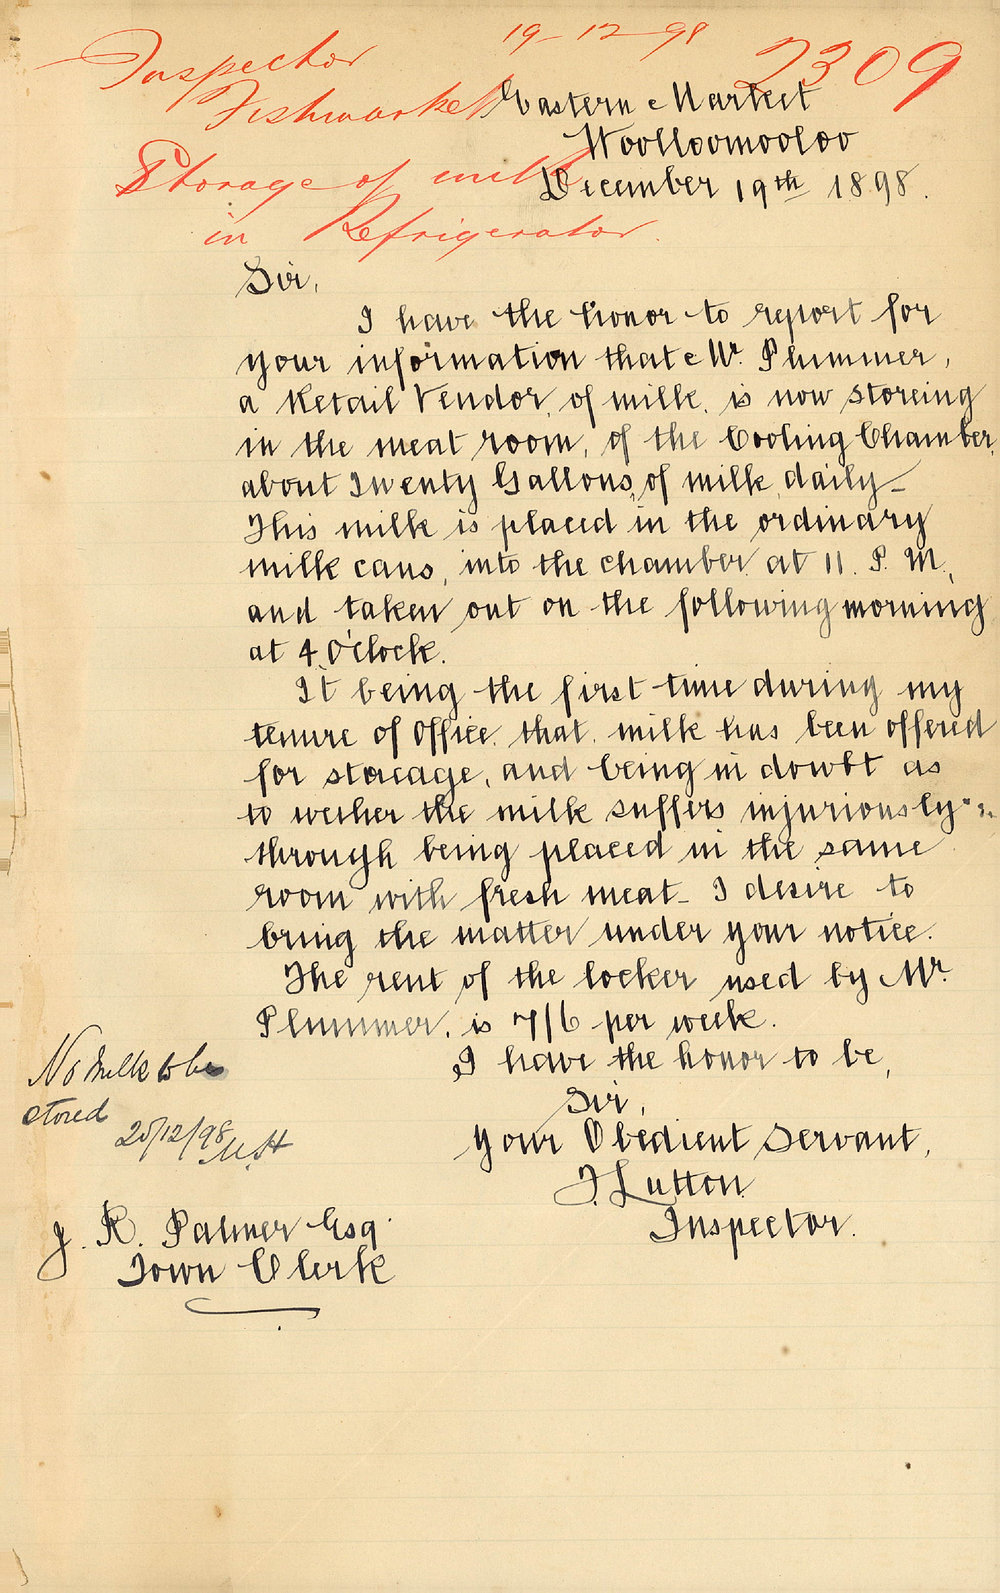 19-12-98
2309
Inspector
Fishmarket
Storage of milk
in Refrigerator.
Eastern Market
Woolloomooloo
December 19th 1898.
Sir,
I have the honor to report for
your information that Mr. Plummer,
a Retail Vendor, of milk, is now storeing
in the meat room, of the Cooling Chamber,
about Twenty Gallons, of milk, daily_
This milk is placed in the ordinary
milk cans, into the chamber at 11. P. M.,
and taken out on the following morning
at 4 O'Clock.
It being the first time during my
tenure of Office, that milk has been offered
for storeage, and being in dowbt as
to wether the milk suffers injuriously
through being placed in the same
room with fresh meat_ I desire to
bring the matter under your notice.
The rent of the locker used by Mr.
Plummer, is 7/6 per week.
I have the honor to be,
Sir,
Your Obedient Servant,
J. Lutton
Inspector.
No milk to be
stored
20/12/98
J. R. Palmer Esq.
Town Clerk